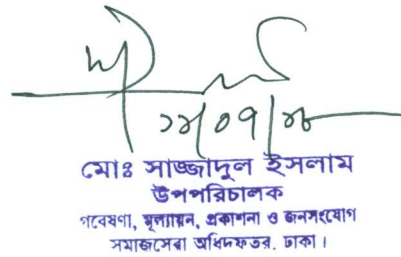 মোঃ সাজ্জাদুল ইসলাম
উপপরিচালক
গবেষণা, মূল্যায়ন, প্রকাশনা ও জনসংযোগ
সমাজসেবা অধিদফতর, ঢাকা।